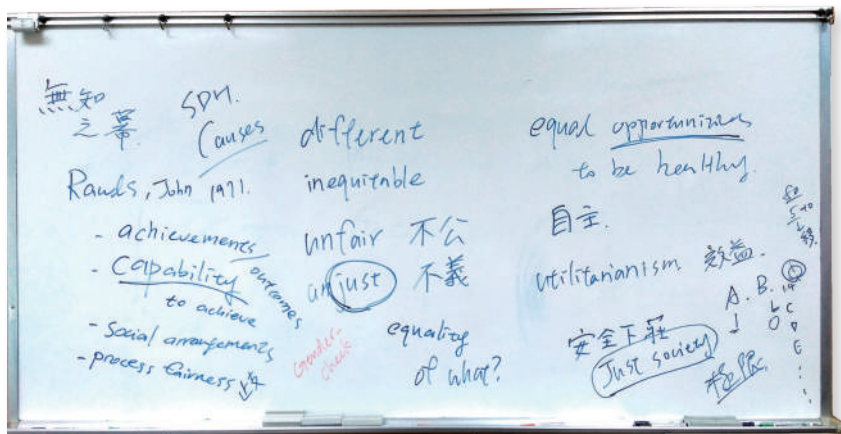 無知
之幕
SDH.
Causes
Rawls, John 1971.
- achievements / outcomes
- Capability
to achieve
- social arrangements
- process fairness
different
inequitable
unfair 不公
unjust 不義
gender-
check
equality
of what?
equal opportunities
to be healthy.
自主.
utilitarianism 效益.
安全下莊
Just society
A. B.
極限
C
D
E